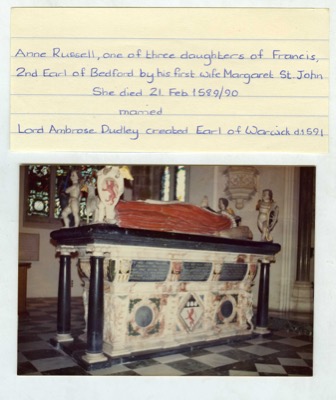 Anne Russell, one of three daughters of Francis,
2nd Earl of Bedford by his first wife Margaret St. John
She died 21 Feb 1589/90
married
Lord Ambrose Dudley created Earl of Warwick. d 1591.